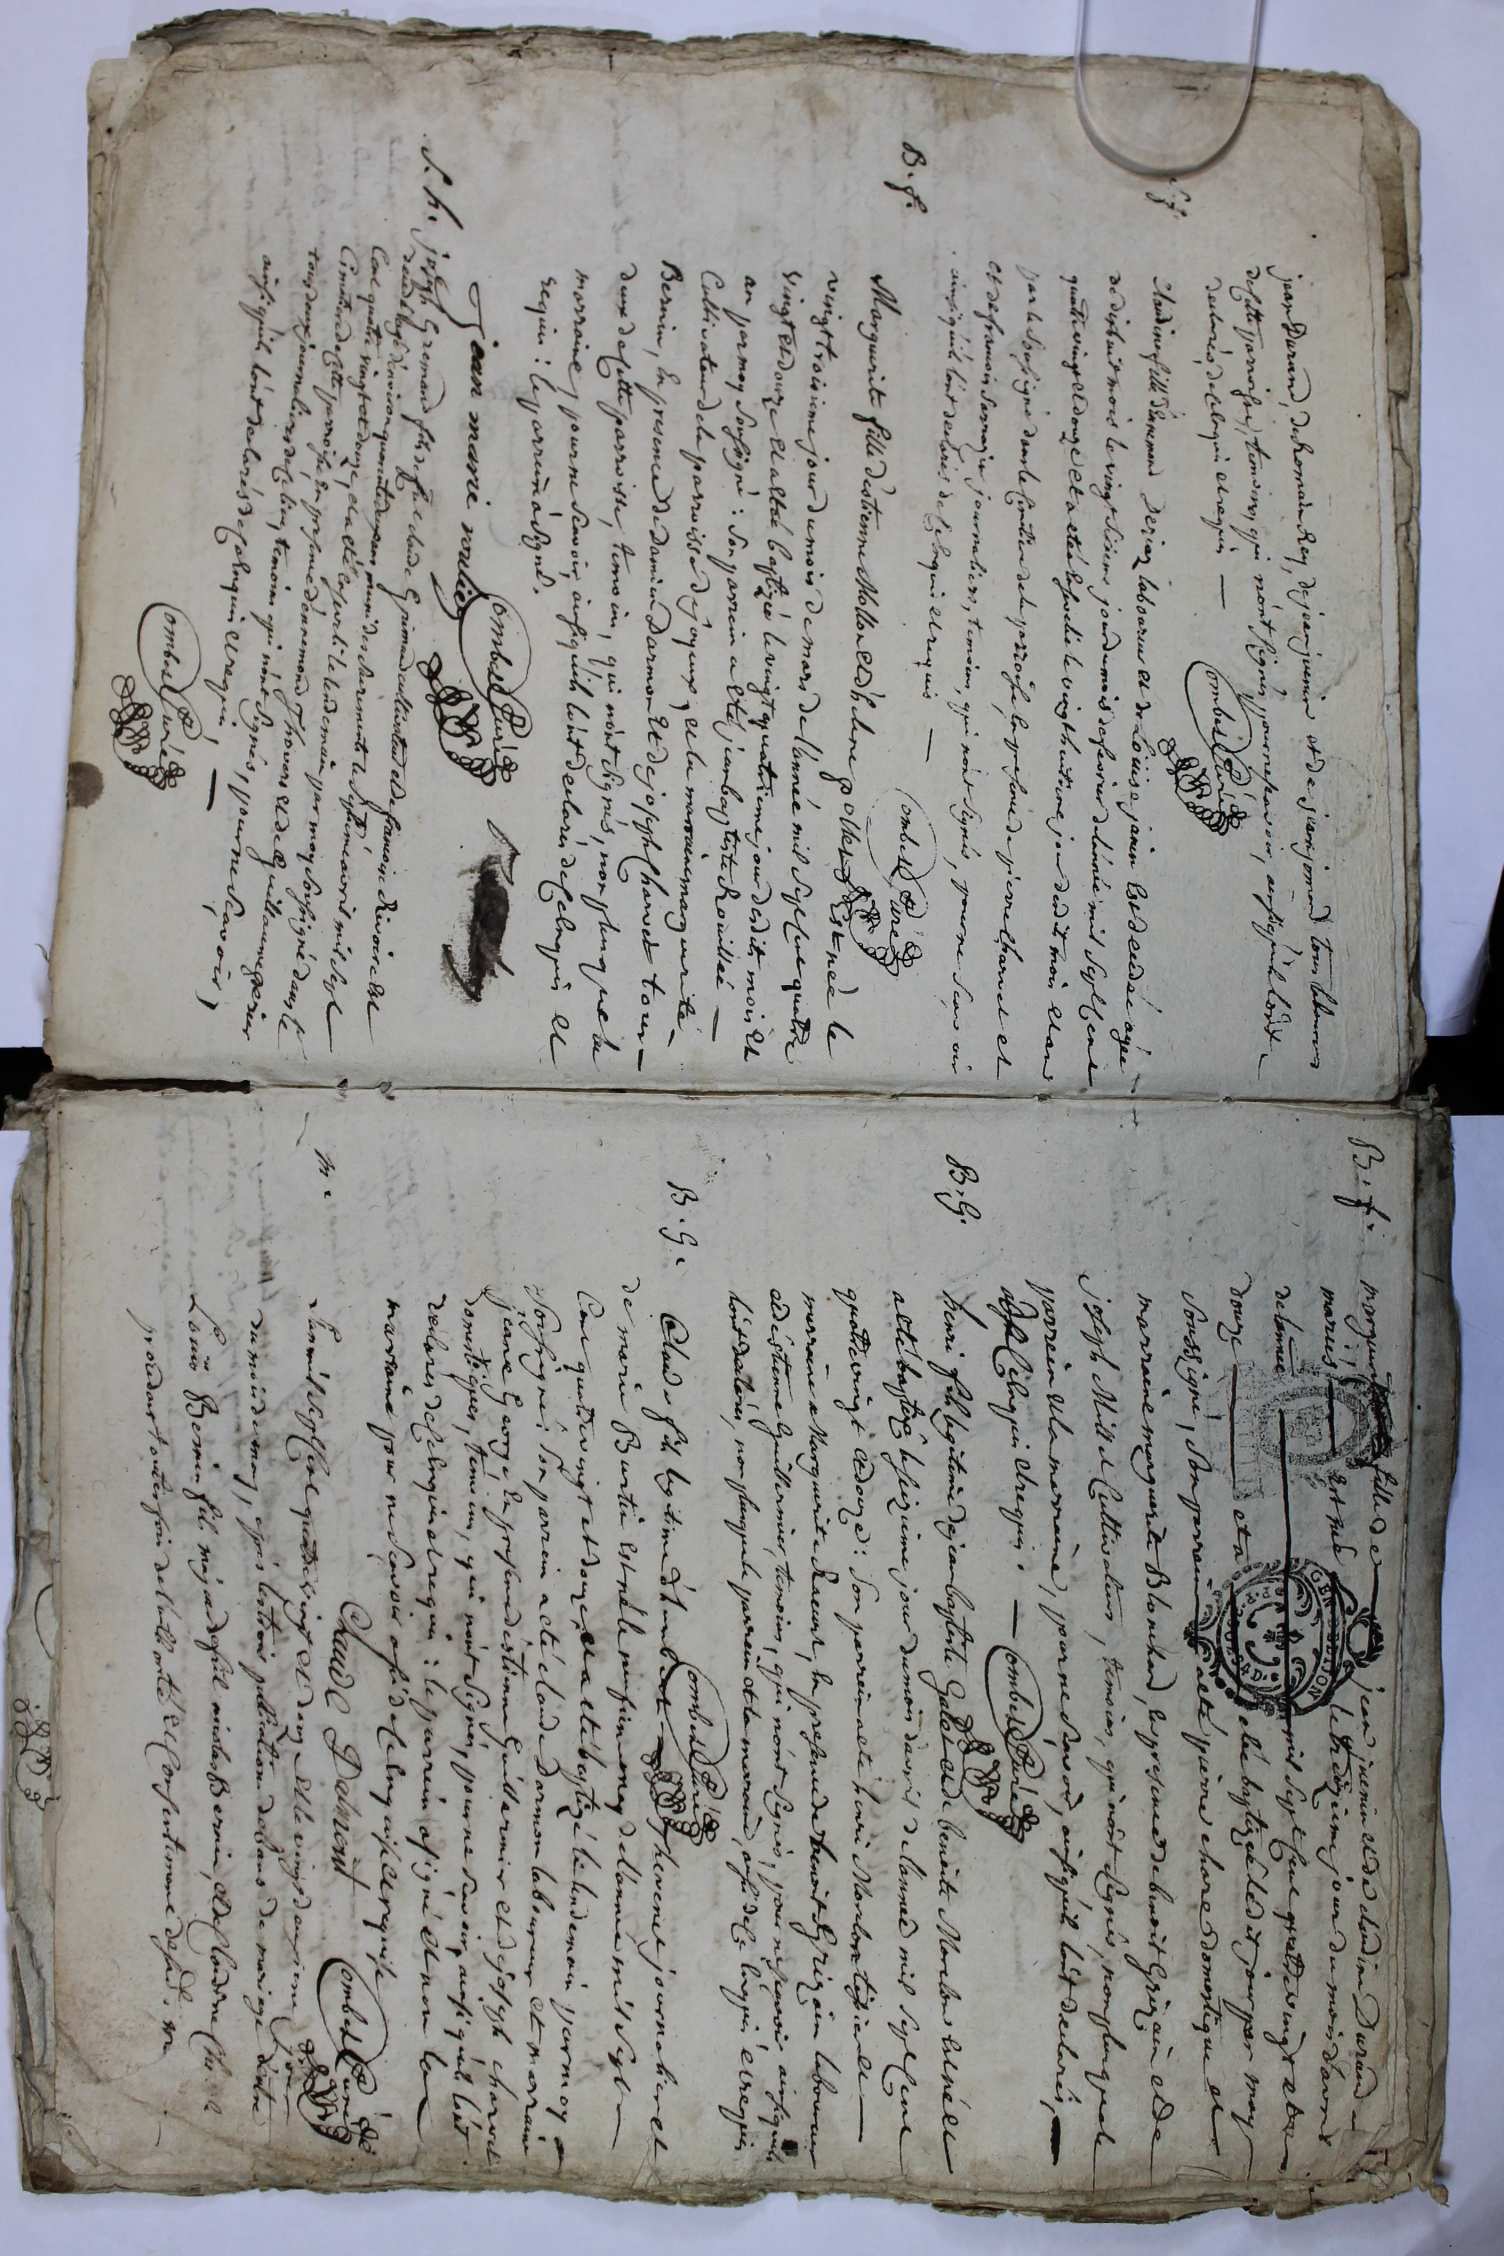 jean Durand, de Romain Rey, de jean juenin et de jean jomand tous laboureurs
de cette paroisse, temoins qui n'ont signés, pour ne savoir, ainsi qu'ils l'ont
declarés de ce enquis et requis —
Combet Curé
S. f.
Claudine fille d'annemond Deriaz laboureur et de Loüise janin est decedée agée
de dix huit mois le vingt sixieme jour du mois de fevrier de l'année mil sept cent
quatre vingt et douze et a etée inhumée le vingt huitieme jour dudit mois et an
par le soussigné dans le Cimetiere de la paroisse, en presence de pierre Charvet et
et de francois journaliers, temoins, qui n'ont signés, pour ne savoir
ainsi qu'ils l'ont declarés de ce enquis et requis —
Combet Curé
B. f.
Marguerite fille d'estienne Mollar et d'helene pollet est née le
vingt troisieme jour du mois de mars de l'année mil sept cent quatre
vingt et douze et a été baptizée le vingt quatrieme jour desdits mois et
an par moy soussigné : son parrein a été jean baptiste Rouillée —
Cultivateur de la parroisse de joyeux, et la marraine marguerite —
Bernin, en presence de damien Darmon et de joseph Charvet tous —
deux de cette parroisse, temoins, qui n'ont signés, non plus que la
marraine, pour ne savoir, ainsi qu'ils l'ont declarés de ce enquis et
requis : le parrein a signé.
Combet Curé
Jean marie roulier
S. h.
joseph Gremand fils de feu Claude Gremand cultivateur et de francoise Rivoire est
decedé agé d'environ quarante deux ans muni des sacrements le septieme avril mil sept
Cent quatre vingt et douze, et a été inhumé le lendemain par moy soussigné dans le
Cimetiere de cette parroisse en presence d'annemond Thovers et de Guillaume
tous deux journaliers de ce lieu, temoins qui n'ont signés, pour ne savoir,
ainsi qu'ils l'ont declarés de ce enquis et requis, —
Combet Curé
B. f.
marguerite fille de — jean juenin et de claudine Durand —
mariés — est née le treizieme jour du mois d'avril
de l'année — mil sept cent quatre vingt et
douze — et a été baptizée ledit jour par moy
soussigné, son parrein a eté pierre chare domestique et
marraine marguerite Blanchard, en presence de benoit Grizain et de
joseph Millet Cultivateurs, temoins, qui n'ont signés, non plus que le
parrein et la marraine, pour ne savoir, ainsi qu'ils l'ont declarés, —
de ce enquis et requis. —
Combet Curé
B. G.
henri fils legitime de jean baptiste Galet et de benoite Monlon est né et
a été baptizé le sizieme jour du mois d'avril de l'année mil sept cent
quatre vingt et douze : son parrein a eté henri Monlon et —
marraine Marguerite en presence de benoit Grizain laboureur
et d'estienne Guillermier, temoins, qui n'ont signés, pour ne savoir ainsi qu'ils
l'ont declarés, non plus que le parrein et la marraine, aussi de ce enquis et requis
Combet Curé
B. G.
Claude fils legitime d'humbert Thevenet journalier et
de marie Burtin est né le de l'année mil sept —
Cent quatre vingt et douze, et a eté baptizé le lendemain par moy
soussigné : son parrein a eté claude Darmon laboureur et marraine
jeane George en presence d'estienne Guillermier et de joseph charvet
domestiques, temoins, qui n'ont signés, pour ne savoir, ainsi qu'ils l'ont
declarés de ce enquis et requis : le parrein a signé et non la
marraine pour ne savoir aussi de ce enquise et requise
Combet Curé
Claude Darmont
M.
L'an mil sept cent quatre vingt et douze et le vingt deuxieme jour
du mois de may, après les trois publications de bans de mariage d'entre
Loüis Bernin fils majeur de feu nicolas Bernin, et de
procedant toutefois de l'authorité et consentement de sad.
GEN DIJON